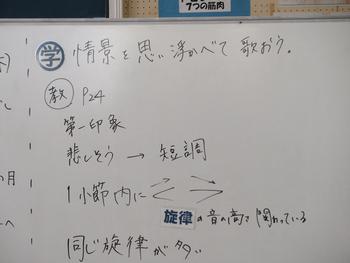 7つの筋肉
学 情景を思い浮かべて歌おう。
教 P24
第一印象
悲しそう → 短調
1小節内に < >
旋律の音の高さで関わっている
同じ旋律が多い
の月